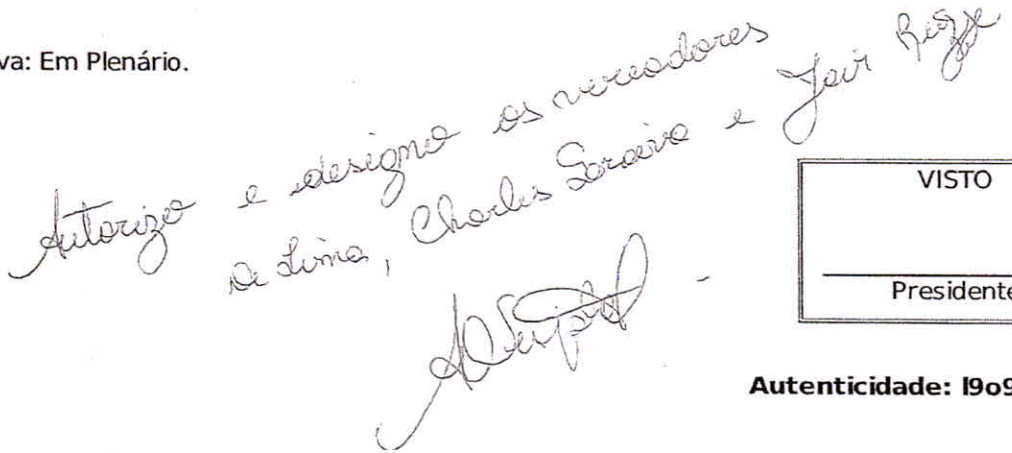 va: Em Plenário.
Autorizo e designo os vereadores
De Lima, Charles Saraiva e Jair Rizzo
VISTO
Presidente
Autenticidade: l9o9